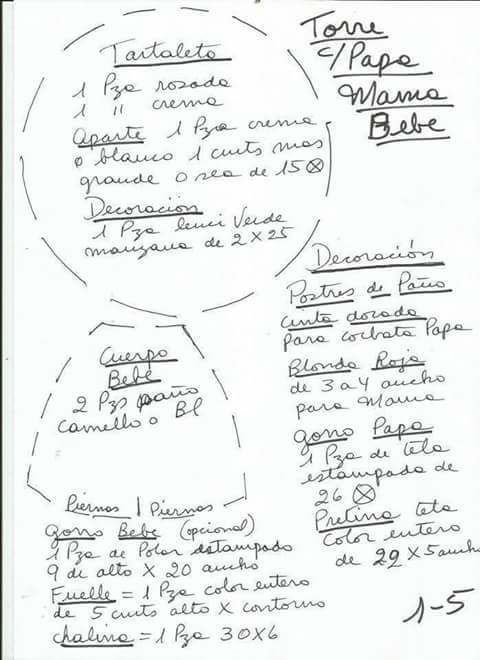 Torre
c/Papa
Mama
Bebe
Tartaleta
1 Pza rosada
1 " crema
Aparte 1 Pza crema
o blanco 1 cmts mas
grande o sea de 15 ⊗
Decoración
1 Pza lenci Verde
manzana de 2 x 25
Cuerpo
Bebe
2 Pzs paño
camello o Bl
Piernas | Piernas
gorro Bebe (opcional)
1 Pza de Polar estampado
9 de alto X 20 ancho
Fuelle = 1 Pza color entero
de 5 cmts alto x contorno
chalina = 1 Pza 30X6
Decoración
Postres de Paño
cinta dorada
para corbata Papa
Blonda Roja
de 3 a 4 ancho
para Mama
gorro Papa
1 Pza de tela
estampada de
26 ⊗
Pretina tela
color entero
de 29 x 5 ancho
1-5